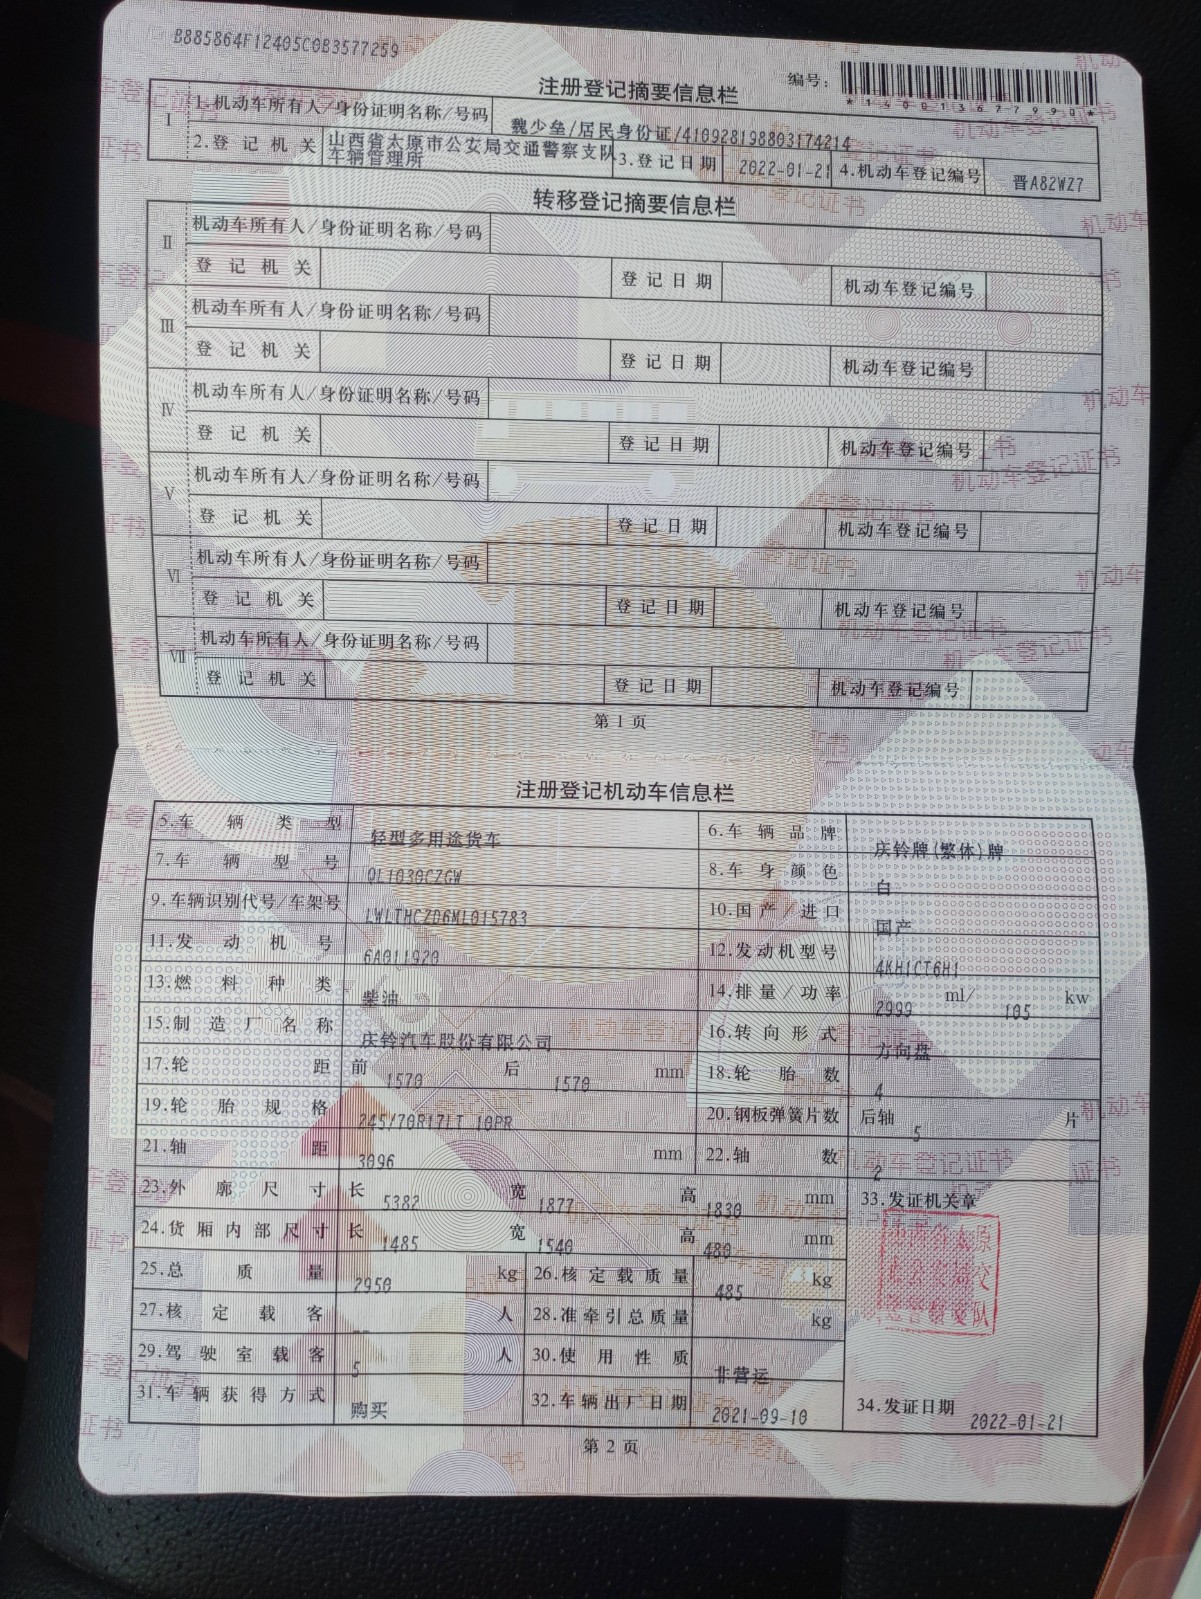 B885864F12405C0B3577259
编号:
*140013677990*
注册登记摘要信息栏
Ⅰ 1.机动车所有人/身份证明名称/号码 魏少垒/居民身份证/410928198803174214
2.登记机关 山西省太原市公安局交通警察支队车辆管理所 3.登记日期 2022-01-21 4.机动车登记编号 晋A82WZ7
转移登记摘要信息栏
Ⅱ 机动车所有人/身份证明名称/号码
登记机关 登记日期 机动车登记编号
Ⅲ 机动车所有人/身份证明名称/号码
登记机关 登记日期 机动车登记编号
Ⅳ 机动车所有人/身份证明名称/号码
登记机关 登记日期 机动车登记编号
Ⅴ 机动车所有人/身份证明名称/号码
登记机关 登记日期 机动车登记编号
Ⅵ 机动车所有人/身份证明名称/号码
登记机关 登记日期 机动车登记编号
Ⅶ 机动车所有人/身份证明名称/号码
登记机关 登记日期 机动车登记编号
第1页
注册登记机动车信息栏
5.车辆类型 轻型多用途货车 6.车辆品牌 庆铃牌(繁体)牌
7.车辆型号 QL1030CZGW 8.车身颜色 白
9.车辆识别代号/车架号 LWLTHCZD6ML015783 10.国产/进口 国产
11.发动机号 6A011920 12.发动机型号 4KH1CT6H1
13.燃料种类 柴油 14.排量/功率 2999 ml/ 105 kw
15.制造厂名称 庆铃汽车股份有限公司 16.转向形式 方向盘
17.轮距 前 1570 后 1570 mm 18.轮胎数 4
19.轮胎规格 245/70R17LT 10PR 20.钢板弹簧片数 后轴 5 片
21.轴距 3096 mm 22.轴数 2
23.外廓尺寸 长 5382 宽 1877 高 1830 mm 33.发证机关章
24.货厢内部尺寸 长 1485 宽 1540 高 480 mm
25.总质量 2950 kg 26.核定载质量 485 kg
27.核定载客 -- 人 28.准牵引总质量 kg
29.驾驶室载客 5 人 30.使用性质 非营运
31.车辆获得方式 购买 32.车辆出厂日期 2021-09-10 34.发证日期 2022-01-21
第2页